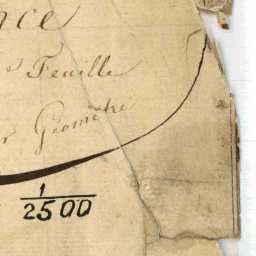 nce
e Feuille
r Géomètre
1/2500